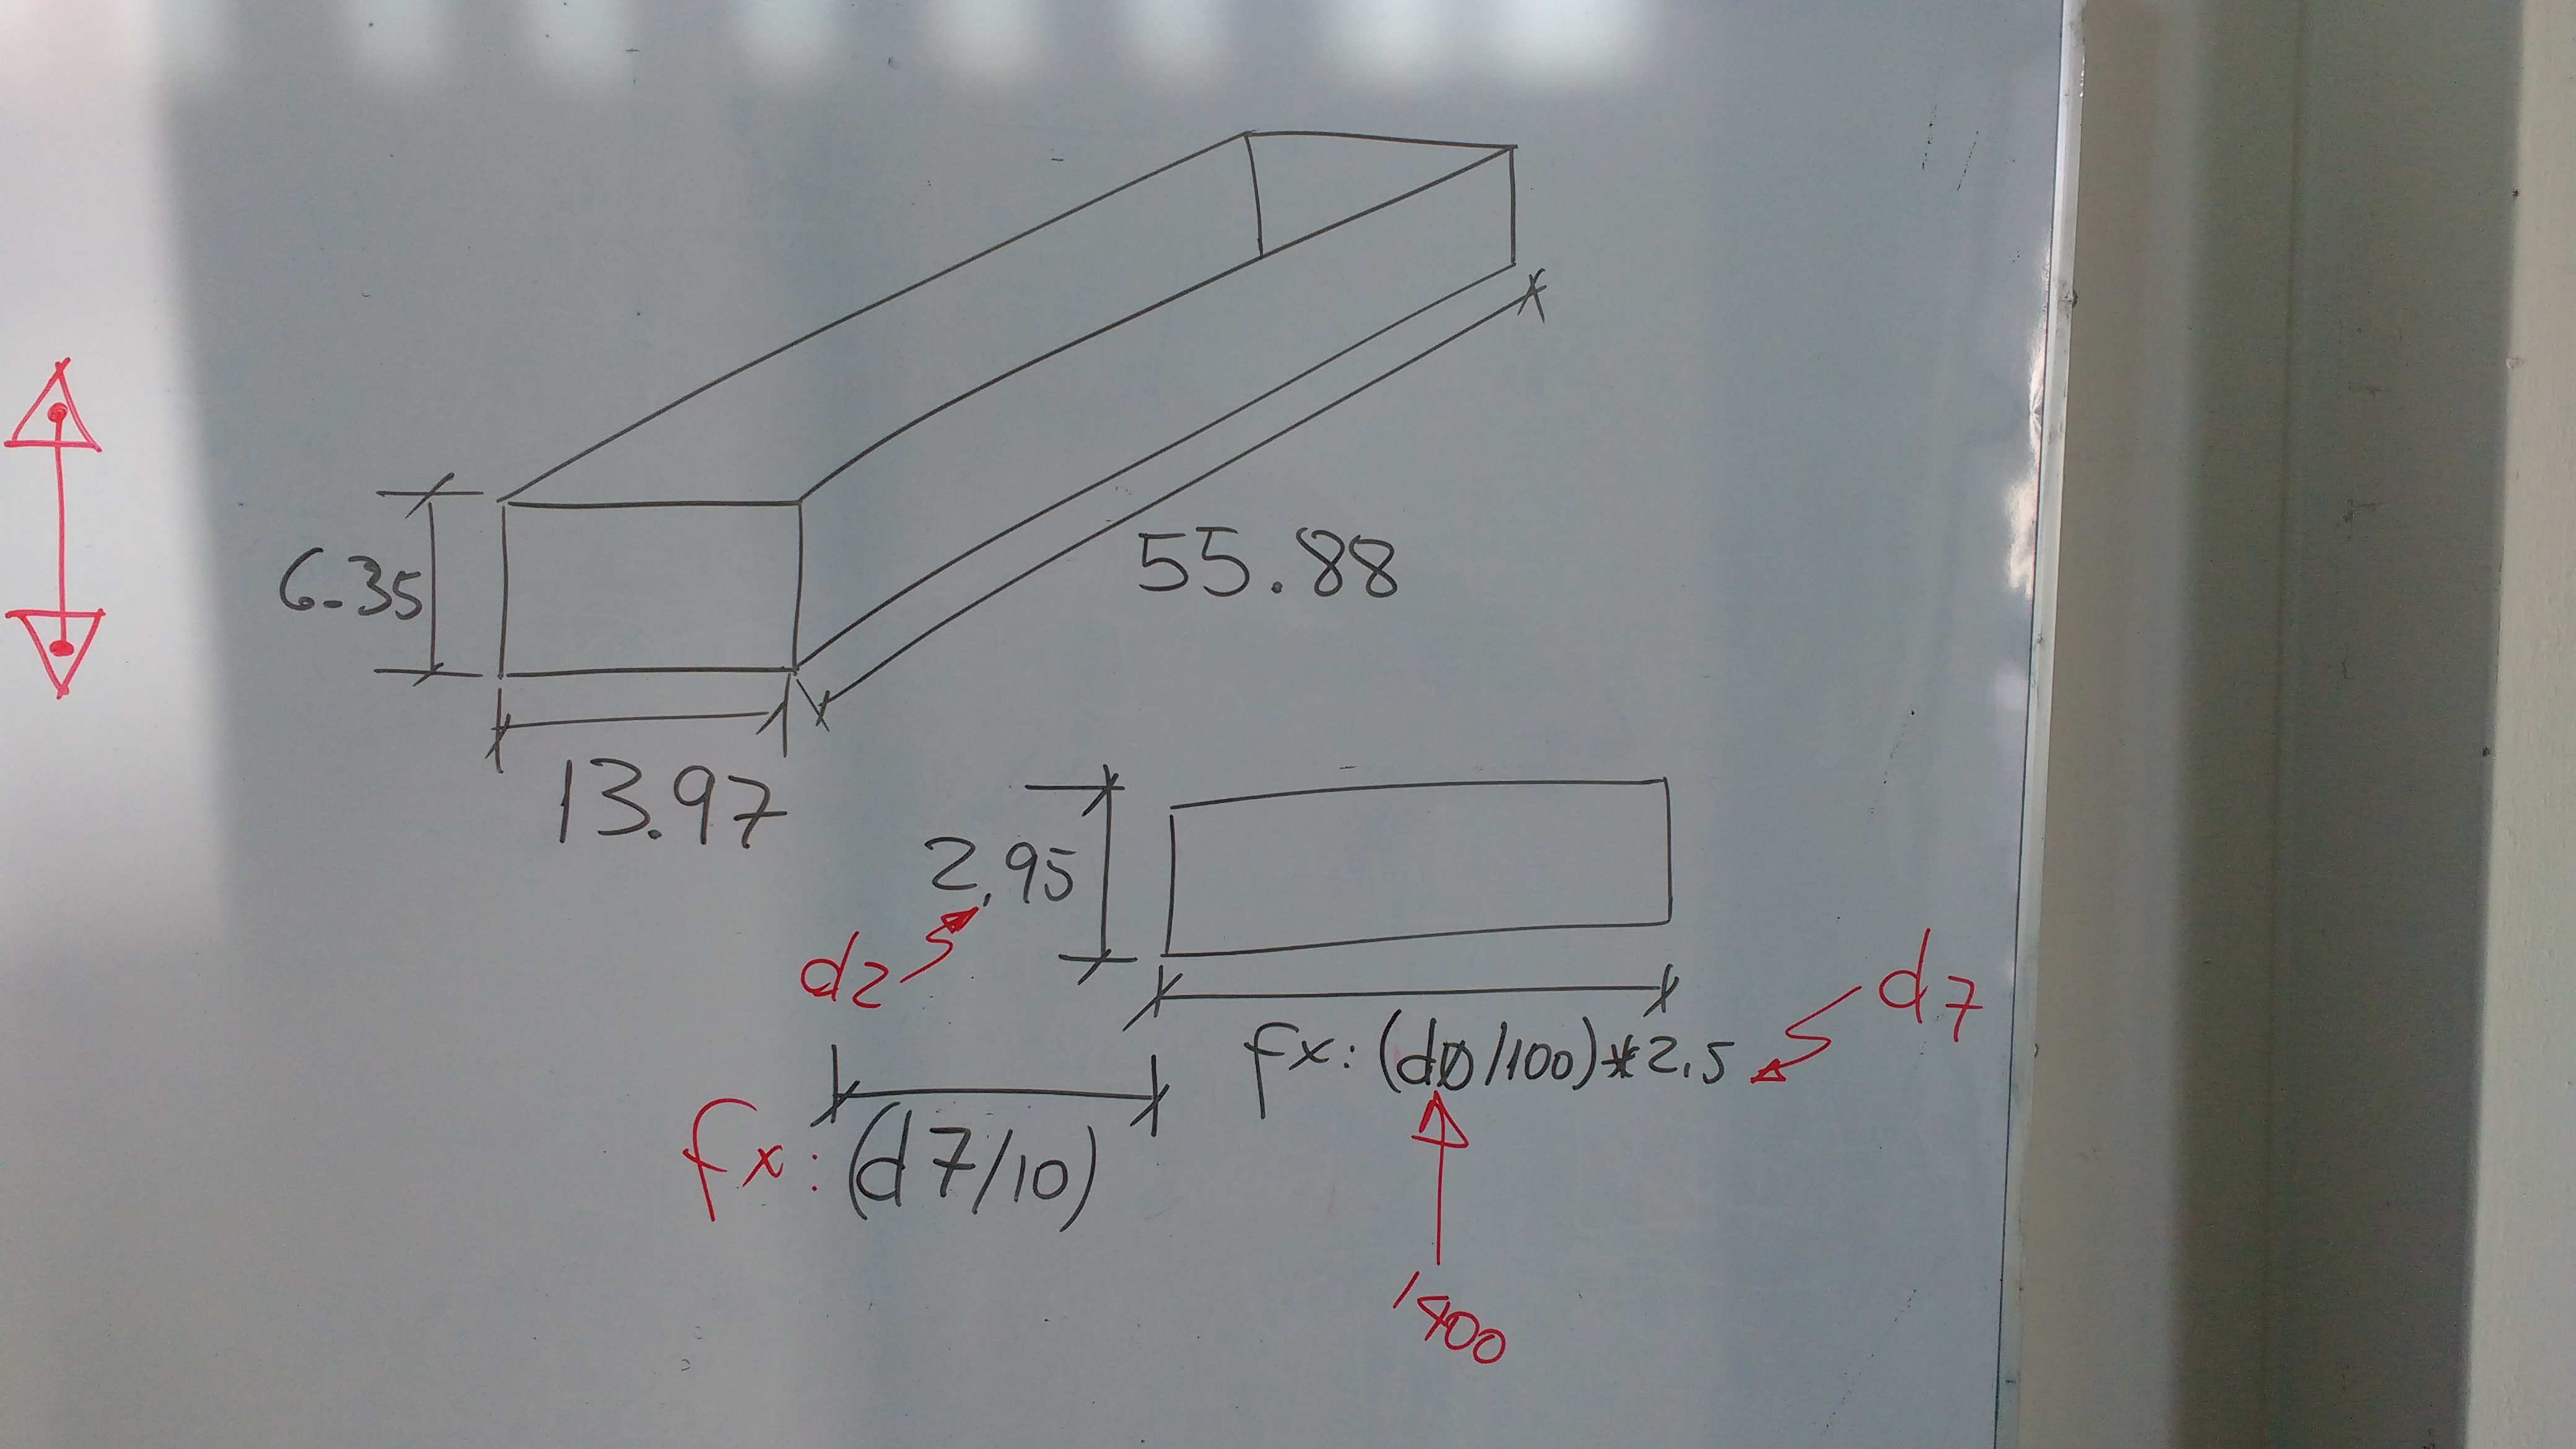 6.35
55.88
13.97
2.95
d2
d7
fx: (d0/100)*2.5
fx: (d7/10)
1400